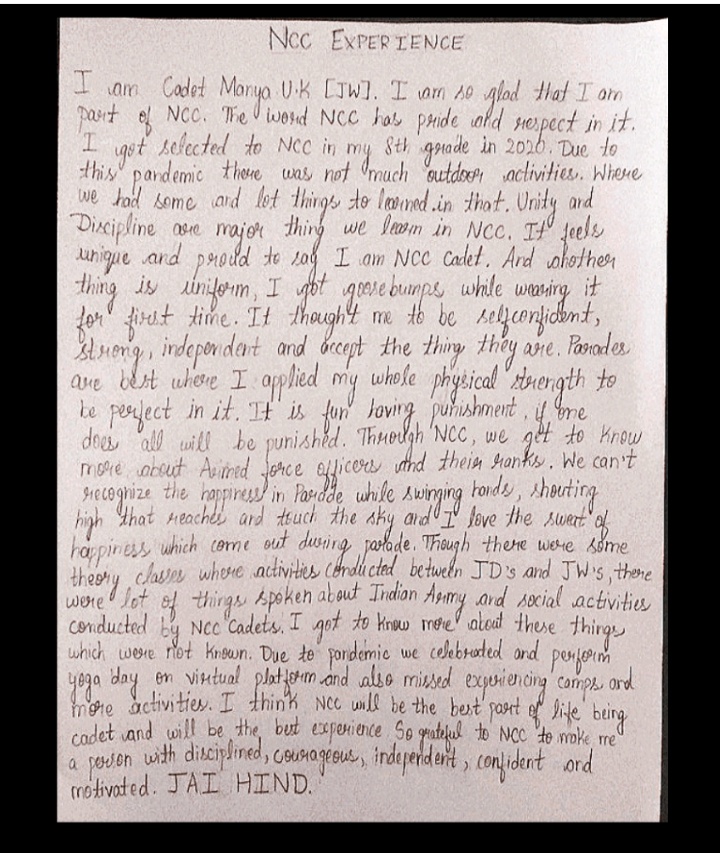 NCC EXPERIENCE
I am Cadet Manya U.K [JW]. I am so glad that I am
part of NCC. The word NCC has pride and respect in it.
I got selected to NCC in my 8th grade in 2020. Due to
this pandemic there was not much outdoor activities. Where
we had some and lot things to learned in that. Unity and
Discipline are major thing we learn in NCC. It feels
unique and proud to say I am NCC Cadet. And another
thing is uniform, I got goosebumps while wearing it
for first time. It thought me to be selfconfident,
strong, independent and accept the thing they are. Parades
are best where I applied my whole physical strength to
be perfect in it. It is fun having punishment, if one
does all will be punished. Through NCC, we get to know
more about Armed force officers and their ranks. We can't
recognize the happiness in Parade while swinging hands, shouting
high that reaches and touch the sky and I love the sweat of
happiness which come out during parade. Though there were some
theory classes where activities conducted between JD's and JW's, there
were lot of things spoken about Indian Army and social activities
conducted by NCC Cadets. I got to know more about these things
which were not known. Due to pandemic we celebrated and perform
yoga day on virtual platform and also missed experiencing camps and
more activities. I think NCC will be the best part of life being
cadet and will be the best experience So grateful to NCC to make me
a person with disciplined, courageous, independent, confident and
motivated. JAI HIND.